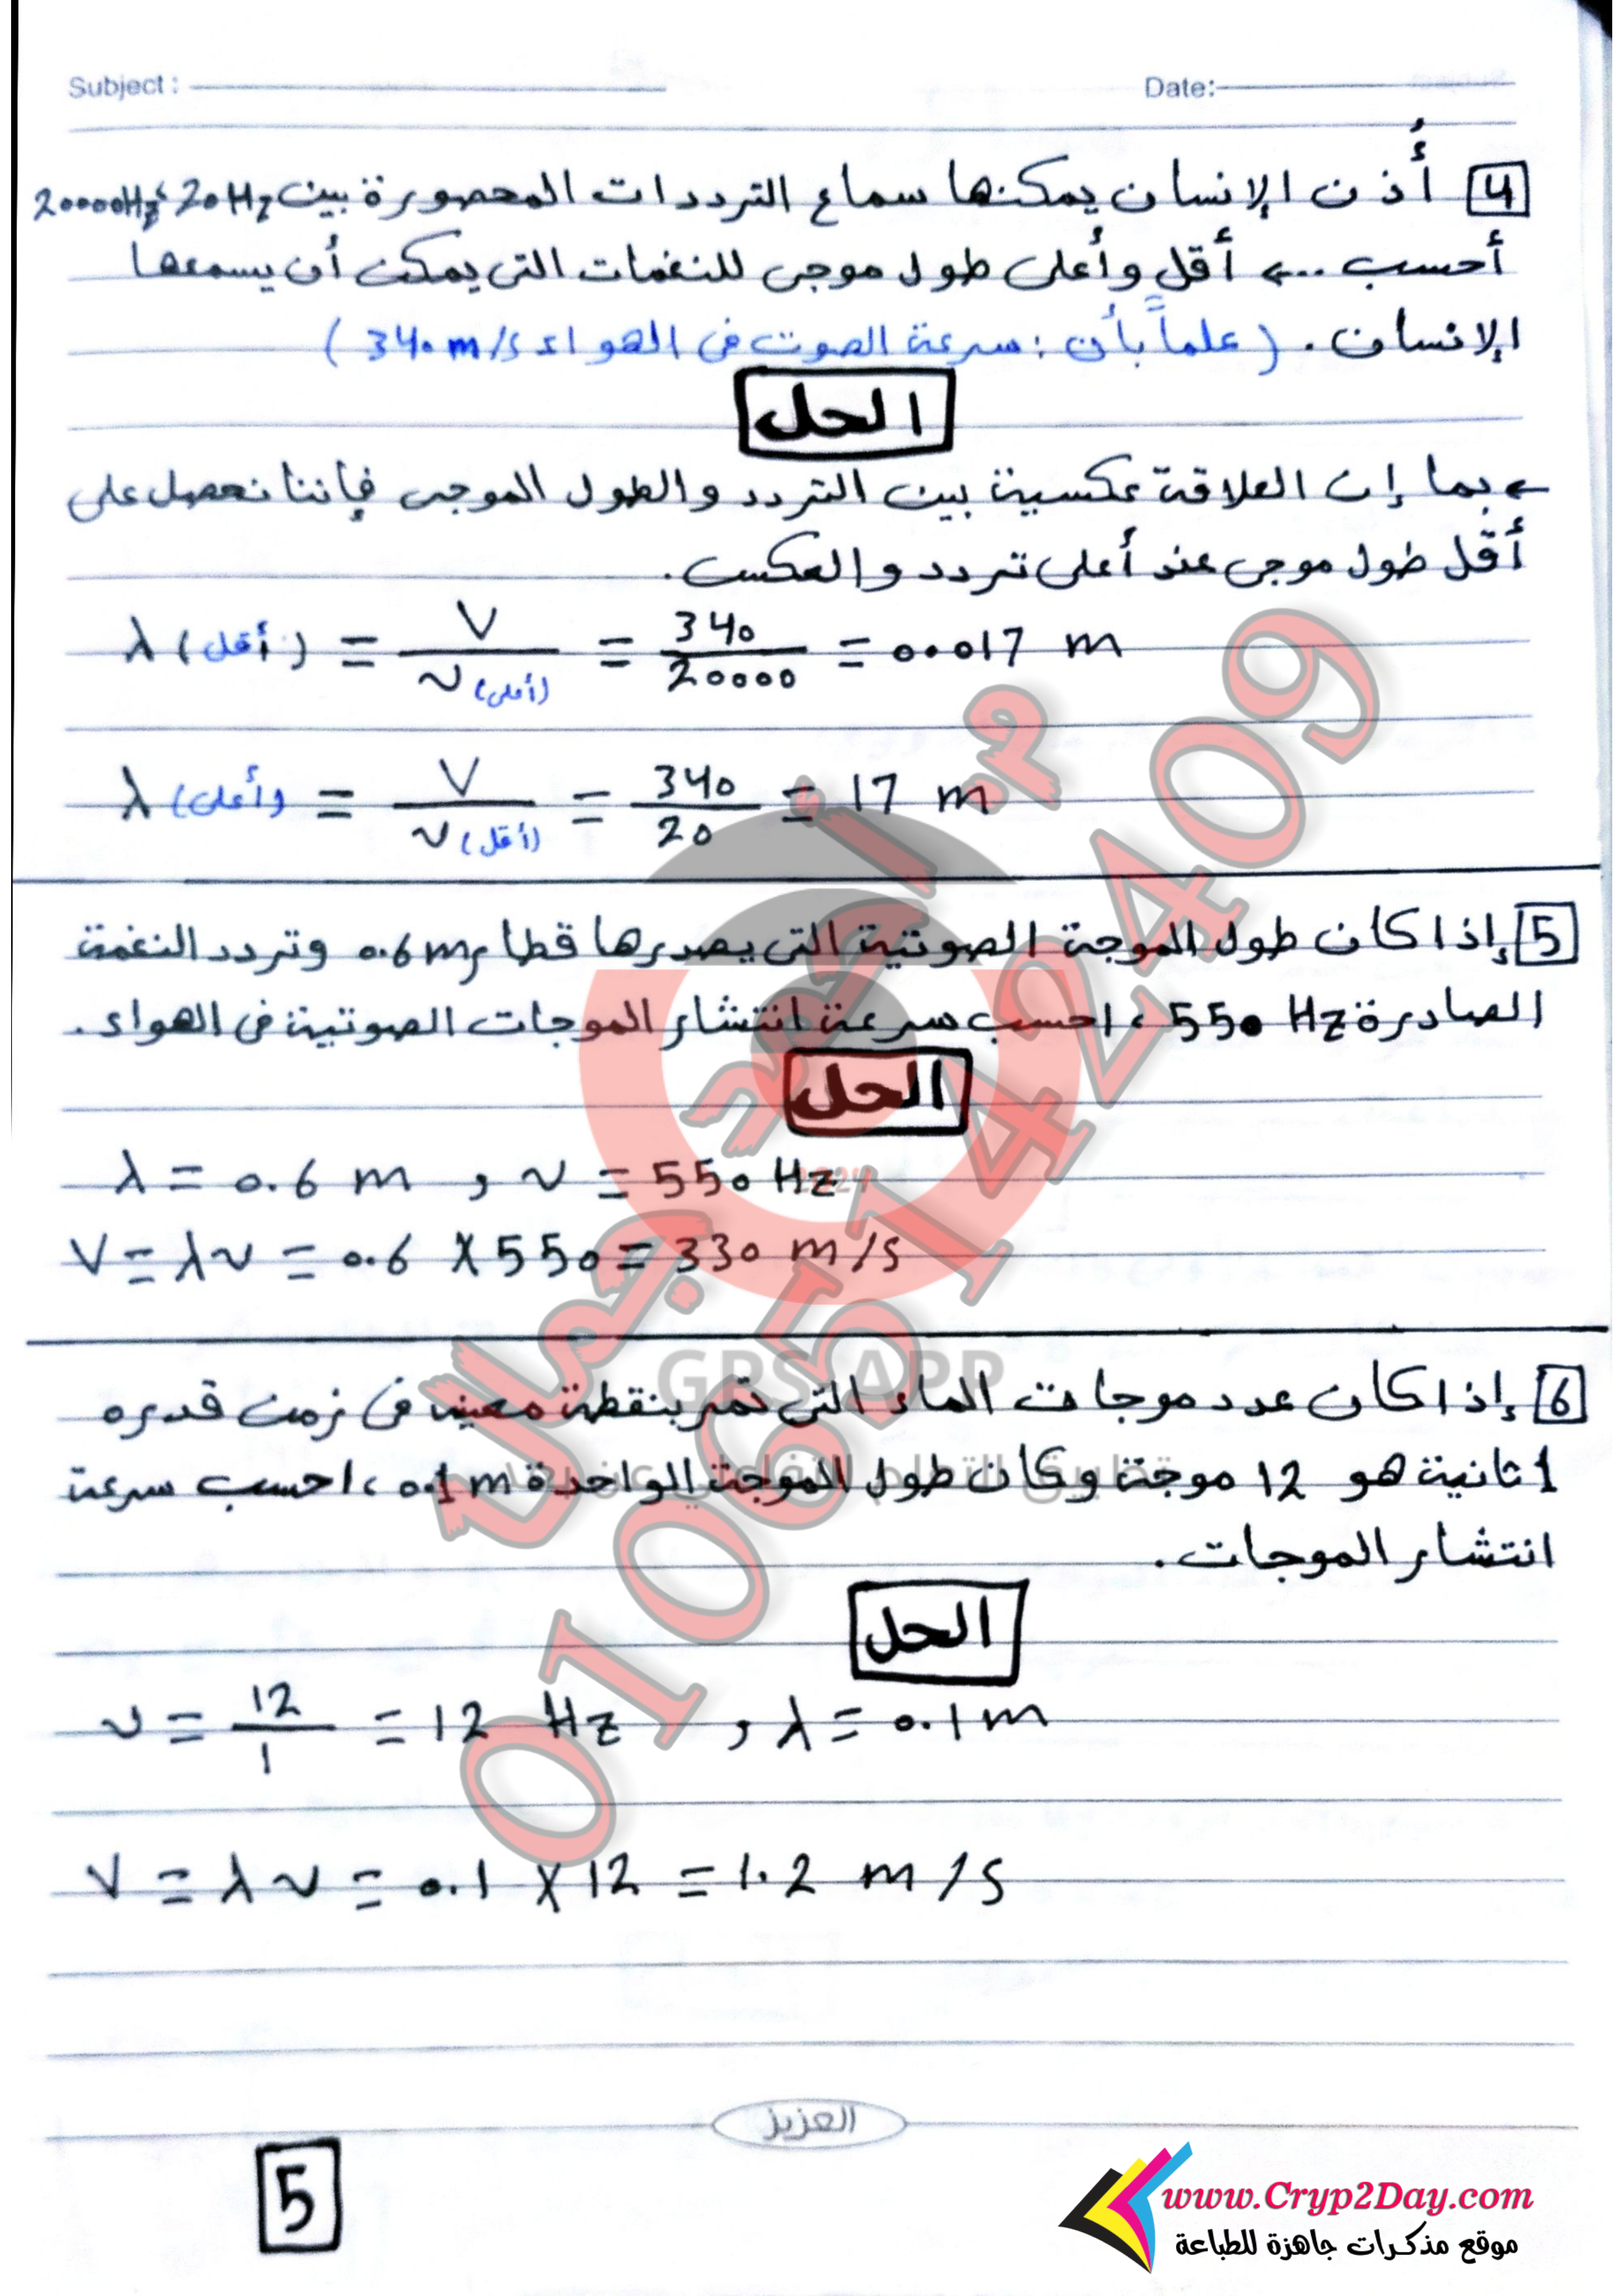 Subject : Date:
4 أُذن الإنسان يمكنها سماع الترددات المحصورة بين 20Hz، 20000Hz
أحسب ... أقل وأعلى طول موجى للنغمات التى يمكن أن يسمعها
الإنسان. (علماً بأن: سرعة الصوت فى الهواء 340 m/s)
الحل
← بما إن العلاقة عكسية بين التردد والطول الموجى فإننا نحصل على
أقل طول موجى عند أعلى تردد والعكس.
λ (أقل) = V / ν (أعلى) = 340 / 20000 = 0.017 m
λ (أعلى) = V / ν (أقل) = 340 / 20 = 17 m
5 إذا كان طول الموجة الصوتية التى يصدرها قطار 0.6m وتردد النغمة
الصادرة 550 Hz، احسب سرعة انتشار الموجات الصوتية فى الهواء.
الحل
λ = 0.6 m , ν = 550 Hz
V = λν = 0.6 X 550 = 330 m/s
6 إذا كان عدد موجات الماء التى تمر بنقطة معينه فى زمن قدره
1 ثانية هو 12 موجة وكان طول الموجة الواحدة 0.1m، احسب سرعة
انتشار الموجات.
الحل
ν = 12 / 1 = 12 Hz , λ = 0.1 m
V = λν = 0.1 X 12 = 1.2 m/s
العزيز
5
www.Cryp2Day.com
موقع مذكرات جاهزة للطباعة
GPS APP
01065142409